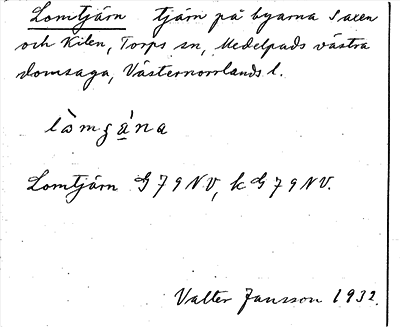 Lomtjärn tjärn på byarna Saxen
och Kilen, Torps sn, Medelpads västra
domsaga, Västernorrlands l.
lò̀mgána
Lomtjärn G79NV, k G79NV.
Valter Jansson 1932.